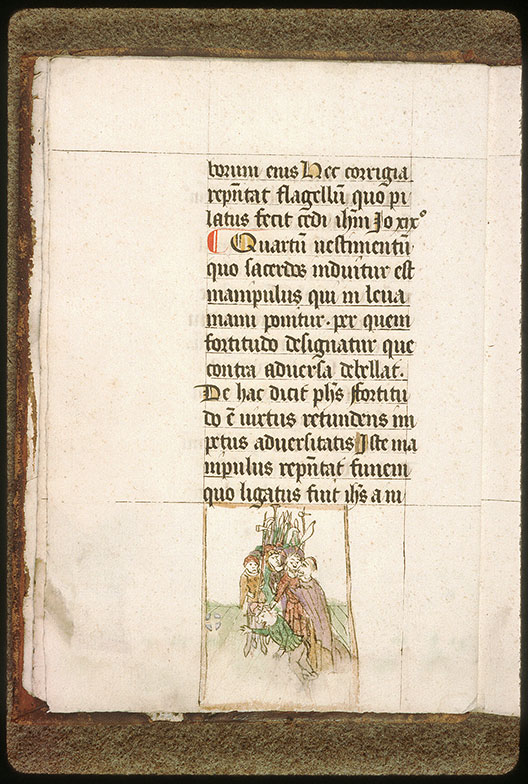 borum eius Hec corrigia
rep̄ntat flagellū quo pi
latus fecit cedi ihm̄ Jo xix°
Quartū uestimentū
quo sacerdos induitur est
manipulus qui in leua
manu ponitur. per quem
fortitudo designatur que
contra aduersa debellat.
De hac dicit ph̄s ffortitu
do ē uirtus retundens im
petus aduersitatis Iste ma
nipulus rep̄ntat funem
quo ligatus fuit ih̄s a iu